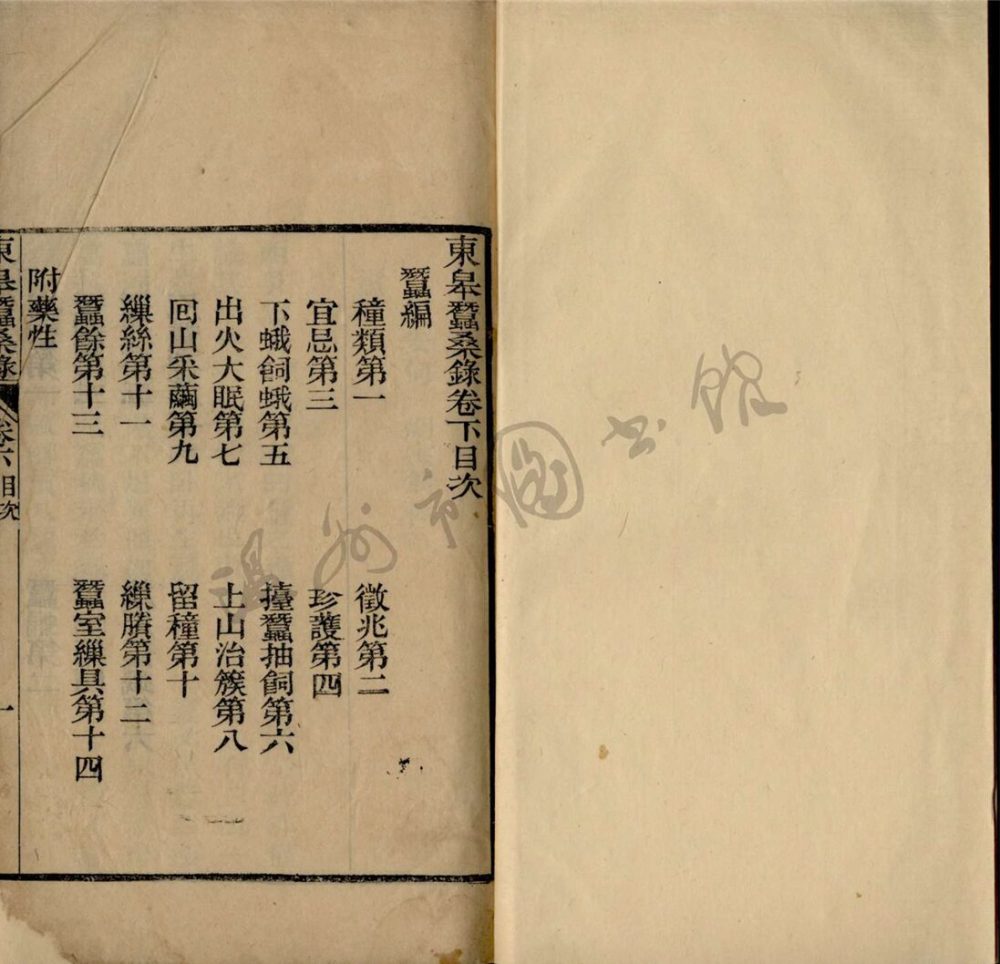 東皋蠶桑錄卷下目次
蠶編
種類第一
徵兆第二
宜忌第三
珍護第四
下蛾飼蛾第五
擡蠶抽飼第六
出火大眠第七
上山治簇第八
回山采繭第九
留種第十
繅絲第十一
繅賸第十二
蠶餘第十三
蠶室繅具第十四
附藥性
東皋蠶桑錄
目次
一
溫州市圖書館